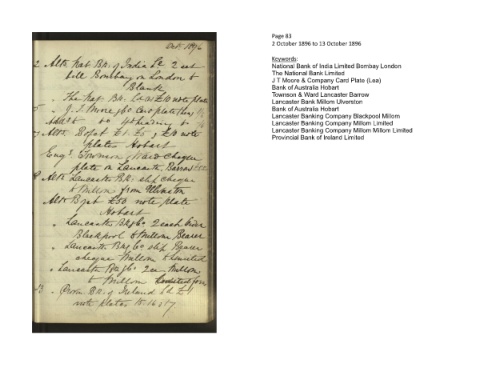 Oct 1896
2 Altr Nat Bk. of India Ld 2 set
bill Bombay on London &
Blank
" The Nat. Bk. note plate
5 " J. T. Moore & Co Card plate
7 Altr. B of Aust £1. £5 note
plates Hobart
Engg Townson & Ward cheque
plate on Lancaster Barrow
8 Altr Lancaster Bk. slip cheque
to Millom from Ulverston
Altr B of Aust £50 note plate
Hobart
" Lancaster Bkg Co 2 each Order
Blackpool & Millom Bearer
" Lancaster Bkg Co slip Bearer
cheque Millom & Limited
" Lancaster Bkg Co 2 on Millom
to Millom Limited
13 " Prov. Bk. of Ireland Ld £1
note plates to 17
Page 83
2 October 1896 to 13 October 1896
Keywords:
National Bank of India Limited Bombay London
The National Bank Limited
J T Moore & Company Card Plate (Lea)
Bank of Australia Hobart
Townson & Ward Lancaster Barrow
Lancaster Bank Millom Ulverston
Bank of Australia Hobart
Lancaster Banking Company Blackpool Millom
Lancaster Banking Company Millom Limited
Lancaster Banking Company Millom Millom Limited
Provincial Bank of Ireland Limited